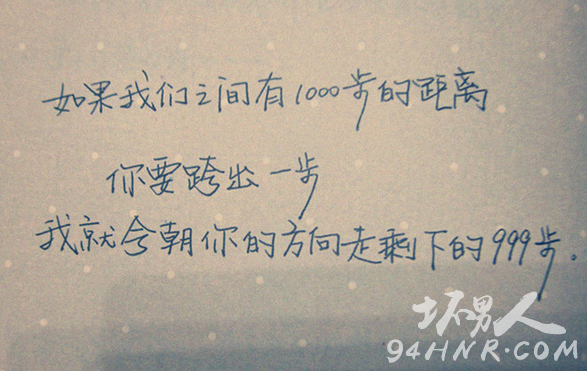 如果我们之间有1000步的距离
你要跨出一步
我就会朝你的方向走剩下的999步.
坏男人
94HNR.COM